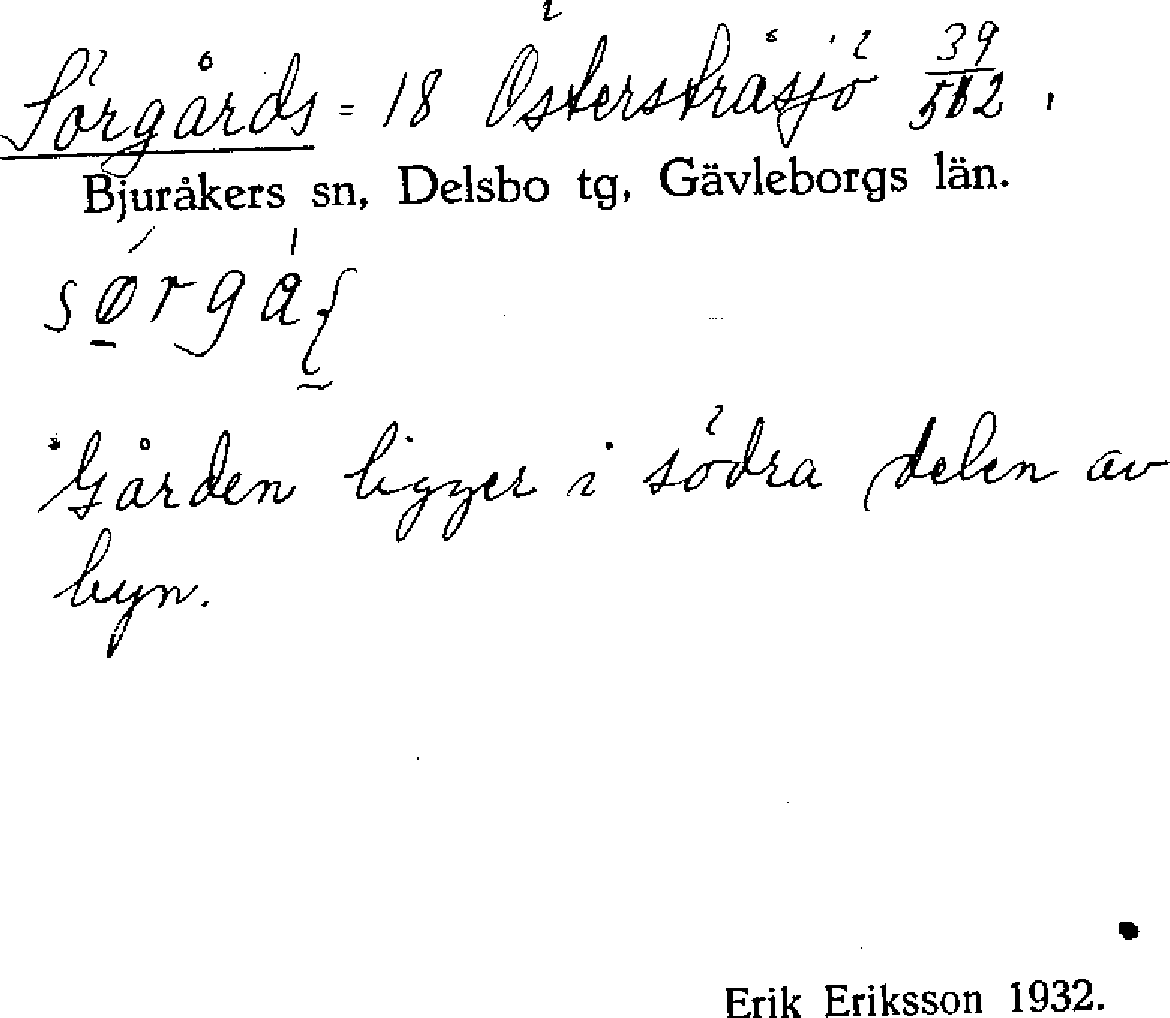 Sörgårds = 18 Österstråsjö 39/562.
Bjuråkers sn, Delsbo tg, Gävleborgs län.
Gården ligger i södra delen av
byn.
Erik Eriksson 1932.